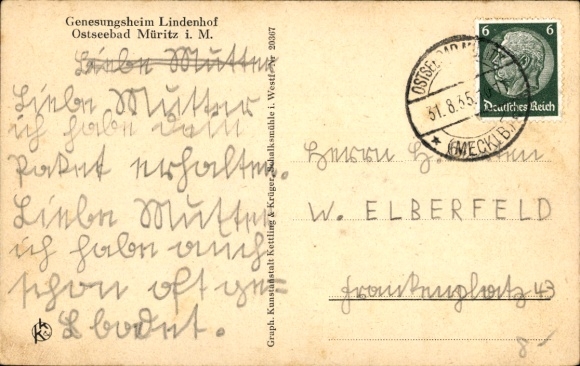 Genesungsheim Lindenhof
Ostseebad Müritz i. M.
Liebe Mutter
Liebe Mutter
ich habe dein
Paket erhalten.
Liebe Mutter
ich habe auch
schon oft ge-
badet.
Graph. Kunstanstalt Kettling & Krüger, Schalksmühle i. Westf. Nr 20367
6 6
Deutsches Reich
OSTSEEBAD MÜRITZ
31.8.35.
(MECKLB.)
Herrn H.
W. ELBERFELD
Frankenplatz 43